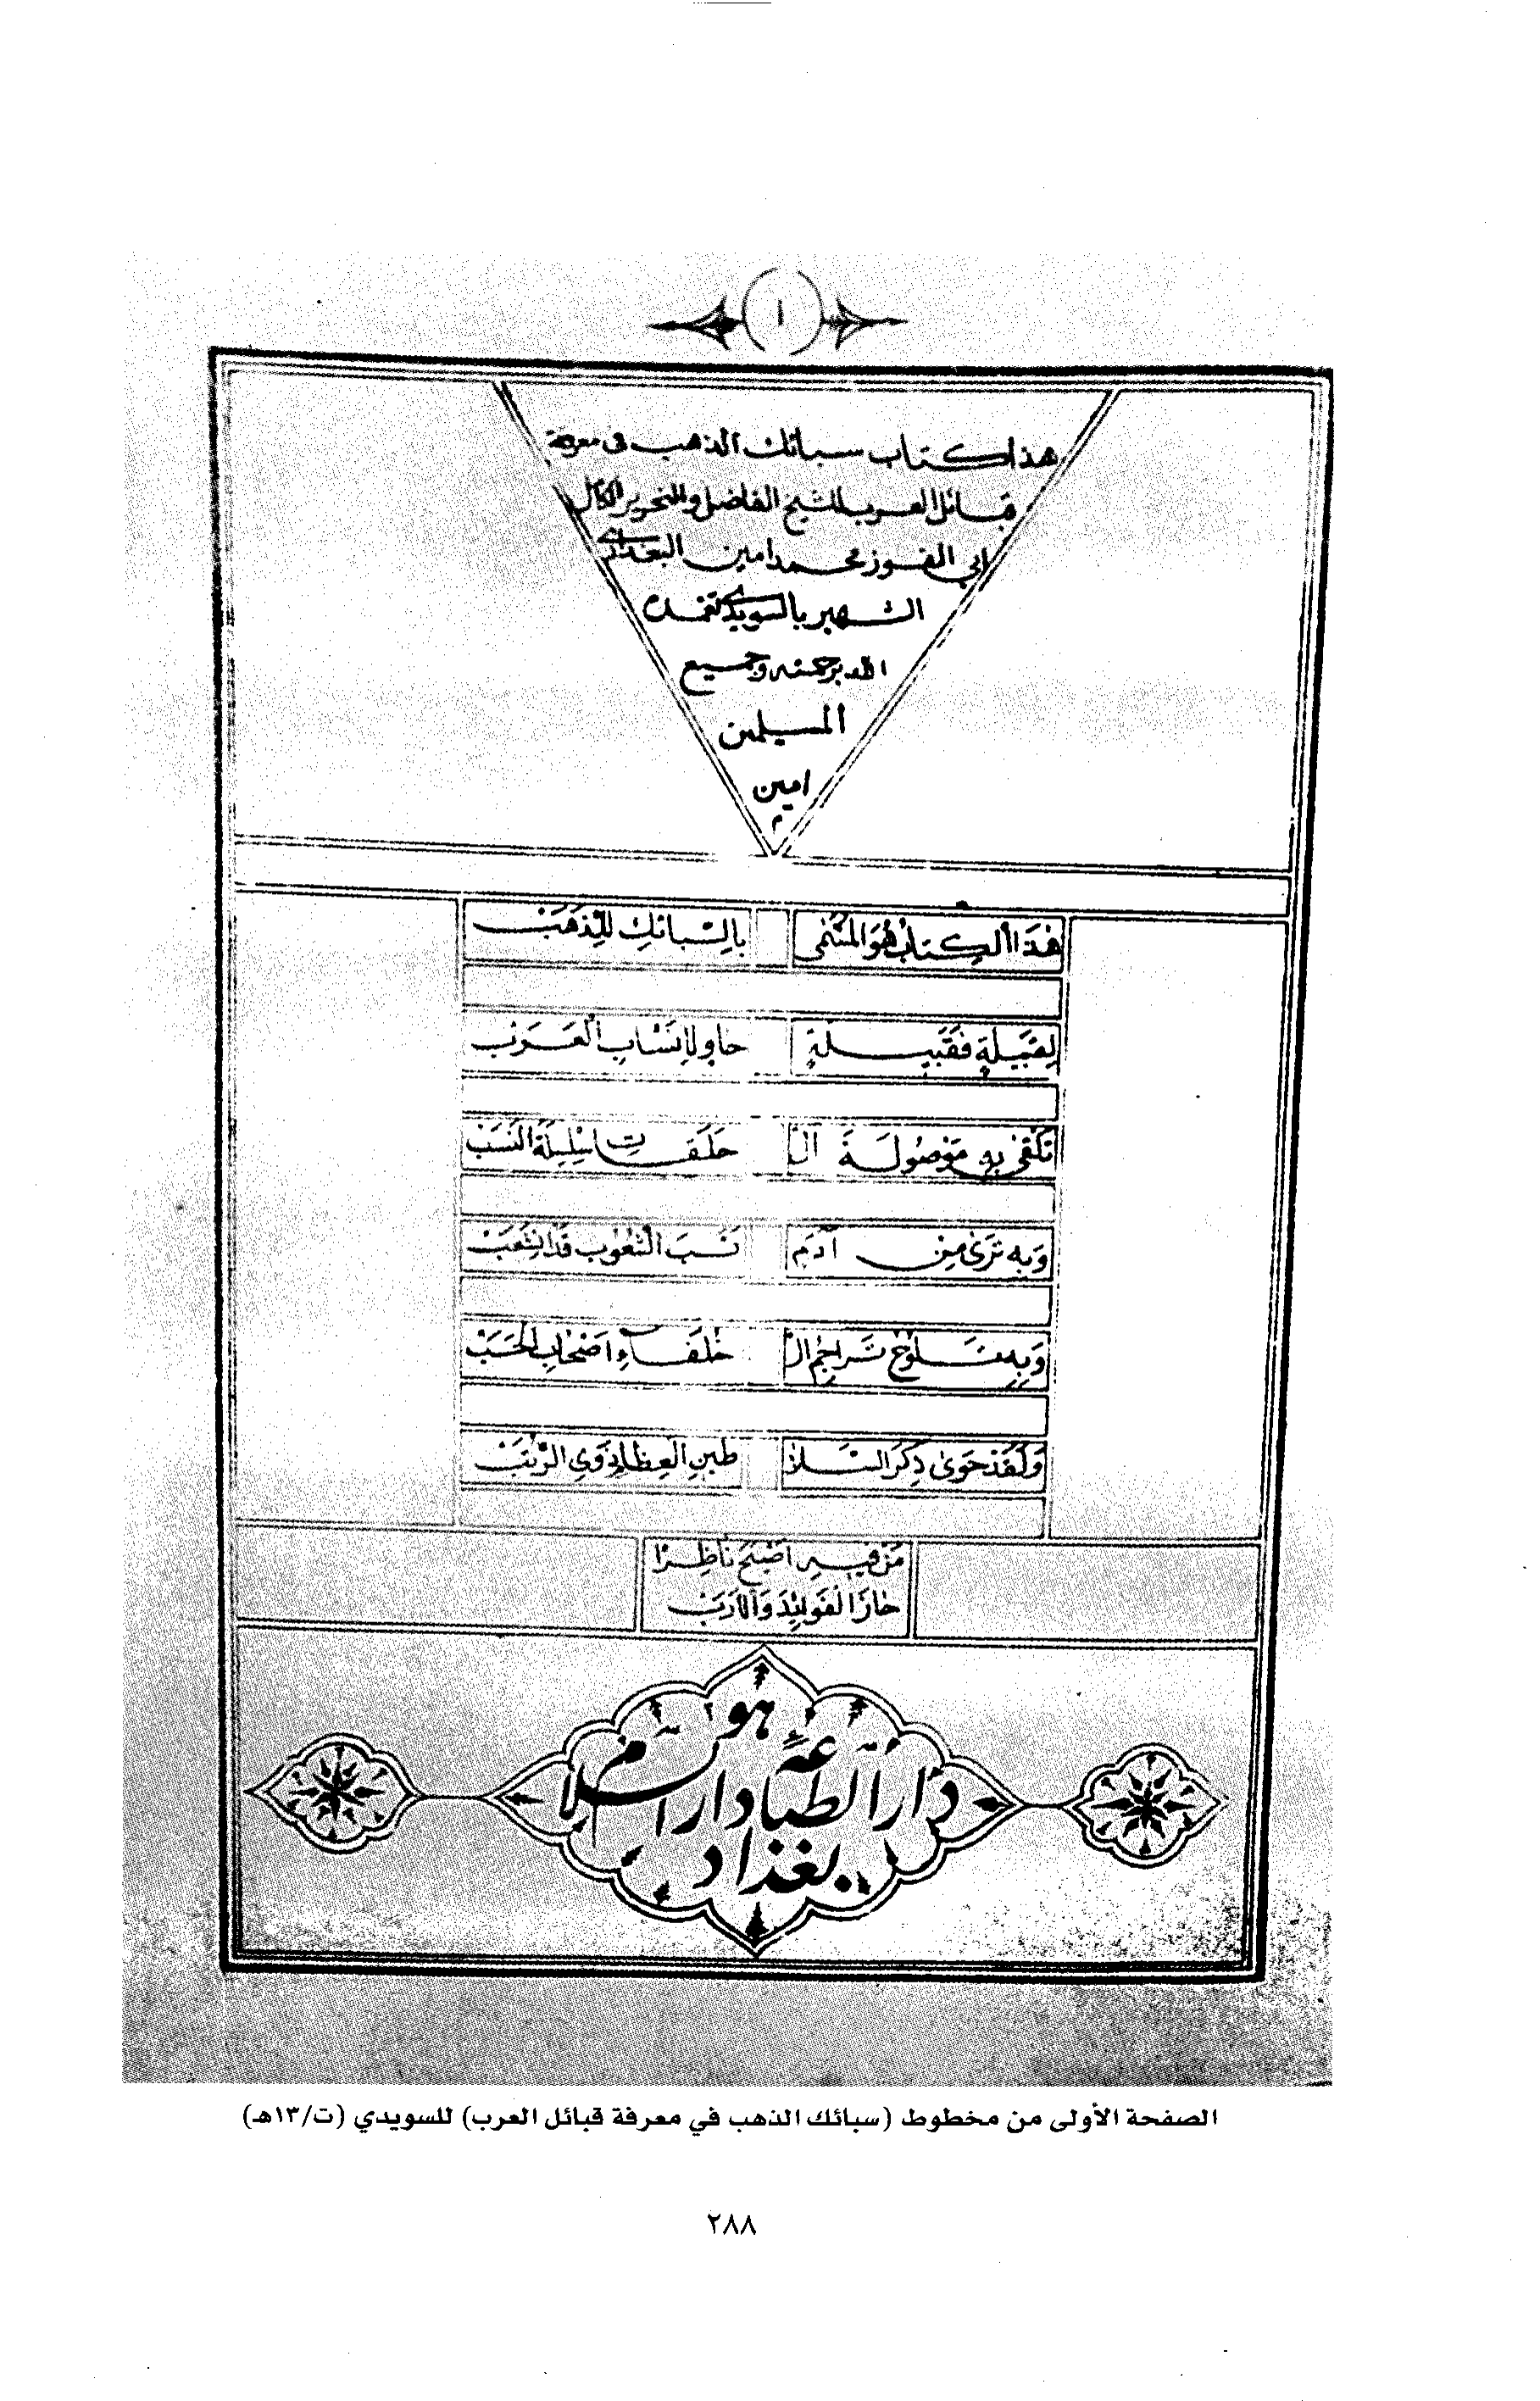 ١
هذا كتاب سبائك الذهب في معرفة
قبائل العرب للشيخ الفاضل والنحرير الكامل
ابي الفوز محمد امين البغدادي
الشهير بالسويدي تغمده
الله برحمته وجميع
المسلمين
امين
م
هَذَا الكِتَابُ هُوَ المُسَمَّى بِالسَّبَائِكِ لِلذَّهَبْ
لِقَبِيلَةٍ فَقَبِيلَةٍ حَاوٍ لِانْسَابِ الْعَرَبْ
تَلْقَى بِهِ مَوْصُولَةَ الْ حَلَقَاتِ سِلْسِلَةَ النَّسَبْ
وَبِهِ تَرَى مِنْ آدَمٍ نَسَبَ الشُّعُوبِ قَدِ انْشَعَبْ
وَبِهِ تَلُوحُ تَرَاجِمُ الْ خُلَفَاءِ اَصْحَابِ الحَسَبْ
وَلَقَدْ حَوَى ذِكْرَ السَّلَا طِينِ الْعِظَامِ ذَوِي الرُّتَبْ
مَنْ فِيهِ اَصْبَحَ نَاظِرًا
حَازَ الفَوَائِدَ وَالْاَدَبْ
هو
دار الطباعة دار السلام
بغداد
الصفحة الأولى من مخطوط (سبائك الذهب في معرفة قبائل العرب) للسويدي (ت/١٣هـ)
٢٨٨